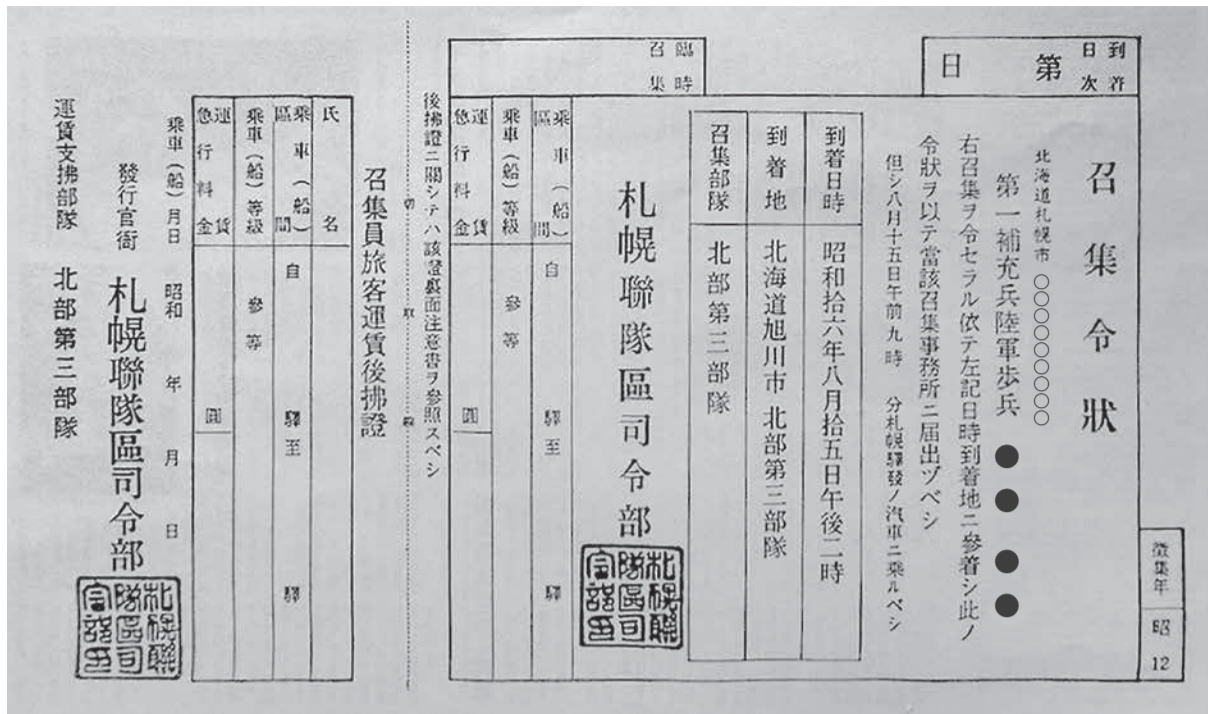 到着日次
第　日
召集令狀
北海道札幌市 ○○○○○○○○○
第一補充兵陸軍歩兵 ●● ●●
右召集ヲ令セラル依テ左記日時到着地ニ參着シ此ノ
令狀ヲ以テ當該召集事務所ニ届出ヅベシ
但シ八月十五日午前九時　分札幌驛發ノ汽車ニ乘ルベシ
徴集年
昭12
到着日時
昭和拾六年八月拾五日午後二時
到着地
北海道旭川市 北部第三部隊
召集部隊
北部第三部隊
臨時召集
札幌聯隊區司令部
札幌聯隊區司令部印
乘車(船)區間
自　驛至　驛
乘車(船)等級
參等
運賃
急行料金
圓
後拂證ニ關シテハ該證裏面注意書ヲ參照スベシ
切取線
召集員旅客運賃後拂證
氏名
乘車(船)區間
自　驛至　驛
乘車(船)等級
參等
運賃
急行料金
圓
乘車(船)月日　昭和　年　月　日
發行官衙　札幌聯隊區司令部
札幌聯隊區司令部印
運賃支拂部隊　北部第三部隊